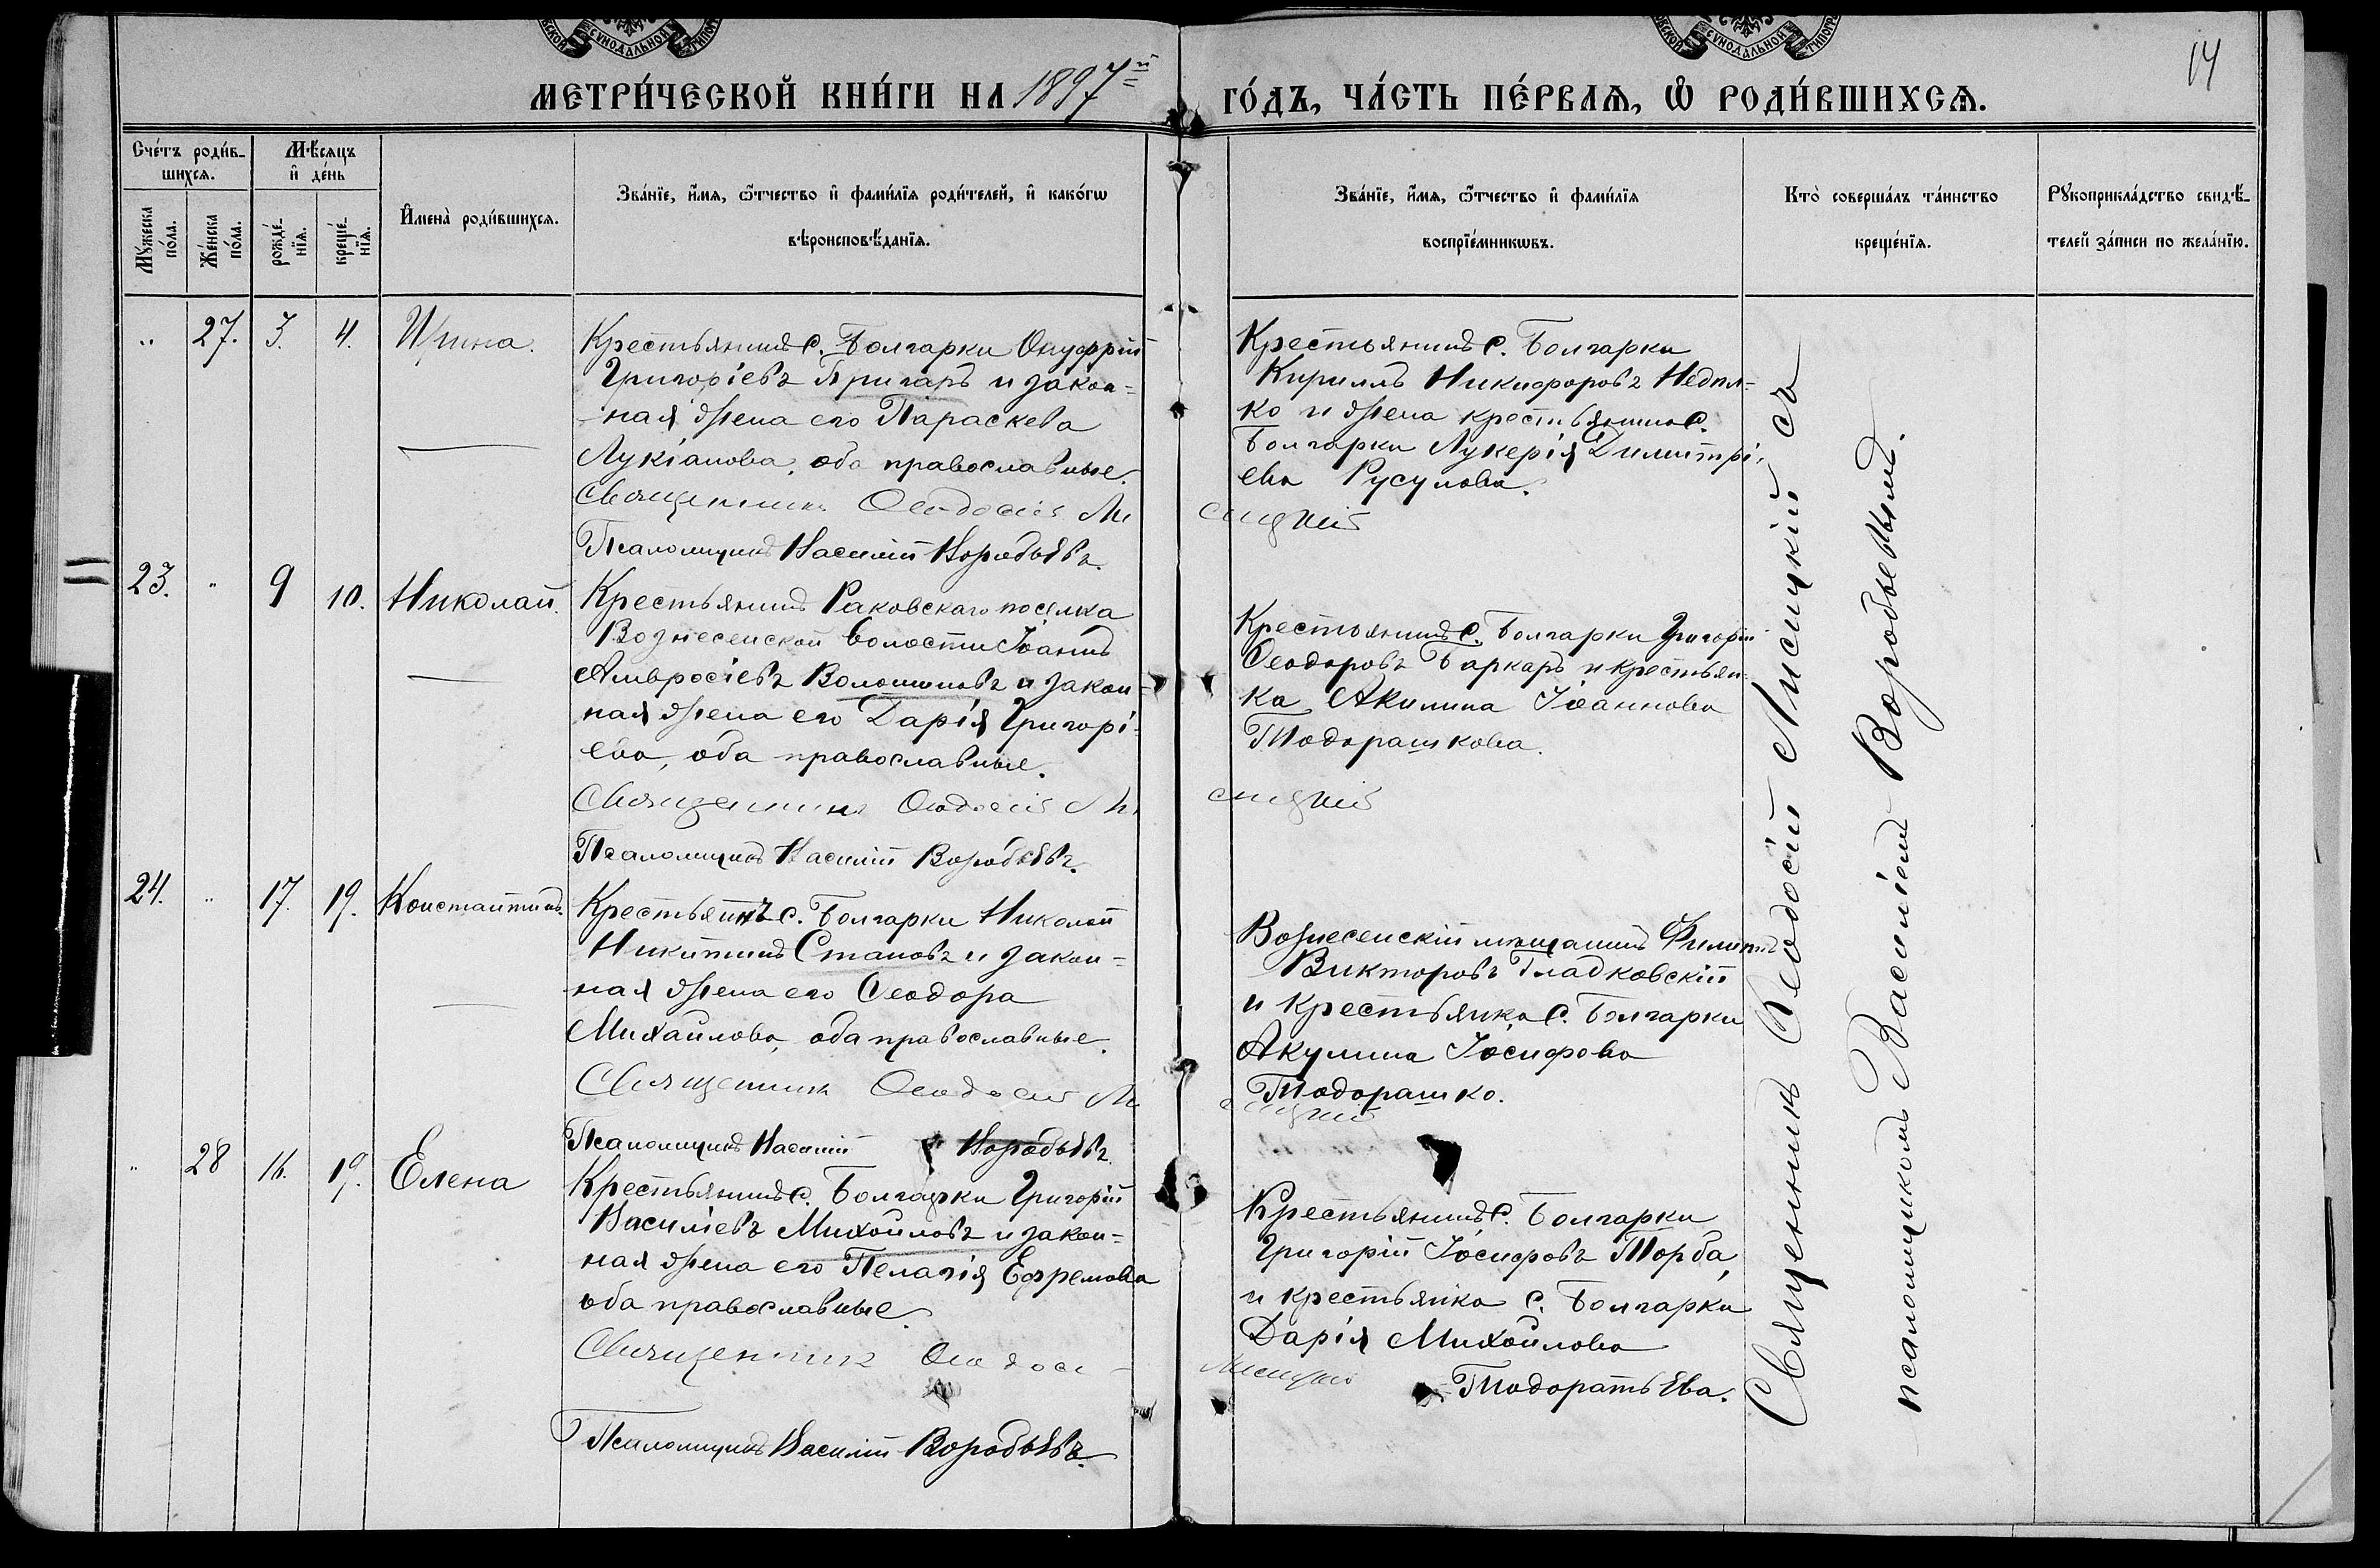 СѴНОДАЛЬНОЙ
СѴНОДАЛЬНОЙ
14
МЕТРИ́ЧЕСКОЙ КНИ́ГИ НА 1897й
ГО́ДЪ, ЧА́СТЬ ПЕ́РВАѦ, Ѡ РОДИ́ВШИХСѦ.
Сче́тъ роди́в-
шихсѧ.
Мѣ́сѧцъ
и де́нь
Мꙋ́жеска по́ла.
Же́нска по́ла.
рожде́-нїѧ.
креще́-нїѧ.
Имена̀ роди́вшихсѧ.
Зва́нїе, и́мѧ, ѻ́тчество и фами́лїѧ роди́телей, и како́гѡ
вѣроисповѣ́данїѧ.
Зва́нїе, и́мѧ, ѻ́тчество и фами́лїѧ
воспрїе́мникѡвъ.
Кто̀ соверша́лъ та́инство
креще́нїѧ.
Рꙋкоприкла́дство свидѣ́-
телей за́писи по жела́нїю.
„ 27. 3. 4. Ирина.
Крестьянинъ с. Болгарки Онуфрій
Григоріевъ Пригаръ и закон=
ная жена его Параскева
Лукіанова, оба православные.
Священникъ Ѳеодосій Ли
Псаломщикъ Василій Воробьевъ.
Крестьянинъ с. Болгарки
Кириллъ Никифоровъ Недол-
ко и жена крестьянина с.
Болгарки Лукерія Димитрі-
ева Русулова.
сицкій
23. „ 9 10. Николай.
Крестьянинъ Раковскаго поселка
Вознесенской волости Іоаннъ
Амвросіевъ Волошиновъ и закон=
ная жена его Дарія Григорі-
ева, оба православные.
Священникъ Ѳеодосій Ли
Псаломщикъ Василій Воробьевъ.
Крестьянинъ с. Болгарки Григорій
Ѳеодоровъ Баркаръ и крестьян-
ка Акилина Іоаннова
Тодорашкова.
сицкій
24. „ 17. 19. Константинъ.
Крестьянинъ с. Болгарки Николай
Никитинъ Становъ и закон=
ная жена его Ѳеодора
Михайлова, оба православные.
Священникъ Ѳеодосій Ли
Псаломщикъ Василій Воробьевъ.
Вознесенскій мѣщанинъ Филиппъ
Викторовъ Гладковскій
и крестьянка с. Болгарки
Акулина Іосифова
Тодорашко.
сицкій
„ 28 16. 19. Елена
Крестьянинъ с. Болгарки Григорій
Василіевъ Михайловъ и закон=
ная жена его Пелагія Ефремова
оба православные.
Священникъ Ѳеодосі
Псаломщикъ Василій Воробьевъ.
Крестьянинъ с. Болгарки
Григорій Іосифовъ Торба,
и крестьянка с. Болгарки
Дарія Михайлова
Лисицкій
Тодоратьева.
Священникъ Ѳеодосій Лисицкій съ
псаломщикомъ Василіемъ Воробьевымъ.